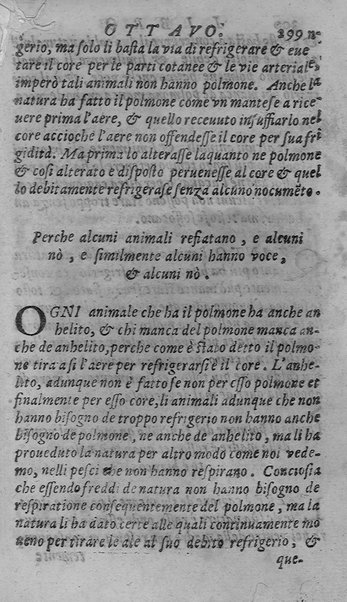 OTTAVO. 299
gerio, ma solo li basta la via di refrigerare & eue
tare il core per le parti cotanee & le vie arteriale,
imperò tali animali non hanno polmone. Anche la
natura ha fatto il polmone come vn mantese a rice
uere prima l'aere, & quello receuuto insuffiarlo nel
core accioche l'aere non offendesse il core per sua fri
gidità. Ma prima lo alterasse laquanto ne polmone
& cosi alterato e disposto peruenesse al core & quel
lo debitamente refrigerase senza alcuno nocumēto.
Perche alcuni animali refiatano, e alcuni
nò, e similmente alcuni hanno voce,
& alcuni nò.
OGNI animale che ha il polmone ha anche an
helito, & chi manca del polmone manca an-
che de anhelito, perche come è stato detto il polmo
ne tira a si l'aere per refrigerarsi è il core. L'anhe-
lito, adunque non è fatto se non per esso polmone et
finalmente per esso core, li animali adunque che non
hanno bisogno de troppo refrigerio non hanno anche
bisogno de polmone, ne anche de anhelito, ma li ha
proueduto la natura per altro modo come noi vede-
mo, nelli pesci che non hanno respirano. Conciosia
che essendo freddi de natura non hanno bisogno de
respiratione consequentemente del polmone, ma la
natura li ha dato certe alle quali continuamente mo
ueno per tirare le ale al suo debito refrigerio, &
que-